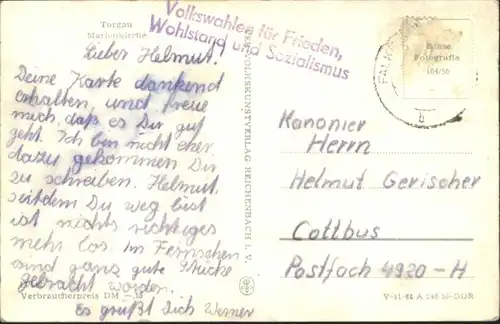 Torgau
Marienkirche
Volkswahlen für Frieden,
Wohlstand und Sozialismus
Lieber Helmut!
Deine Karte dankend
erhalten, und freue
mich, daß es Dir gut
geht. Ich bin nicht eher
dazu gekommen Dir
zu schreiben. Helmut
seitdem Du weg bist
ist nichts richtiges
mehr los im Fernsehen
sind ganz gute Stücke
gebracht worden.
Verbraucherpreis DM -,15
Es grüßt Dich Werner
VOLKSKUNSTVERLAG REICHENBACH I. V.
FALKE
b
Echte
Fotografie
Kanonier
Herrn
Helmut Gerischer
Cottbus
Postfach 4920-H
V-11-64 A
DDR